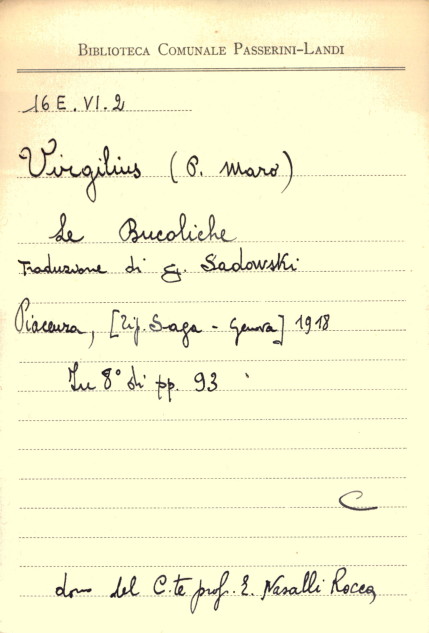 BIBLIOTECA COMUNALE PASSERINI-LANDI
16 E. VI. 2
Virgilius (P. Maro)
Le Bucoliche
Traduzione di G. Sadowski
Piacenza, [Tip. Saga - Genova] 1918
In 8° di pp. 93
C
dono del C.te prof. E. Nasalli Rocca